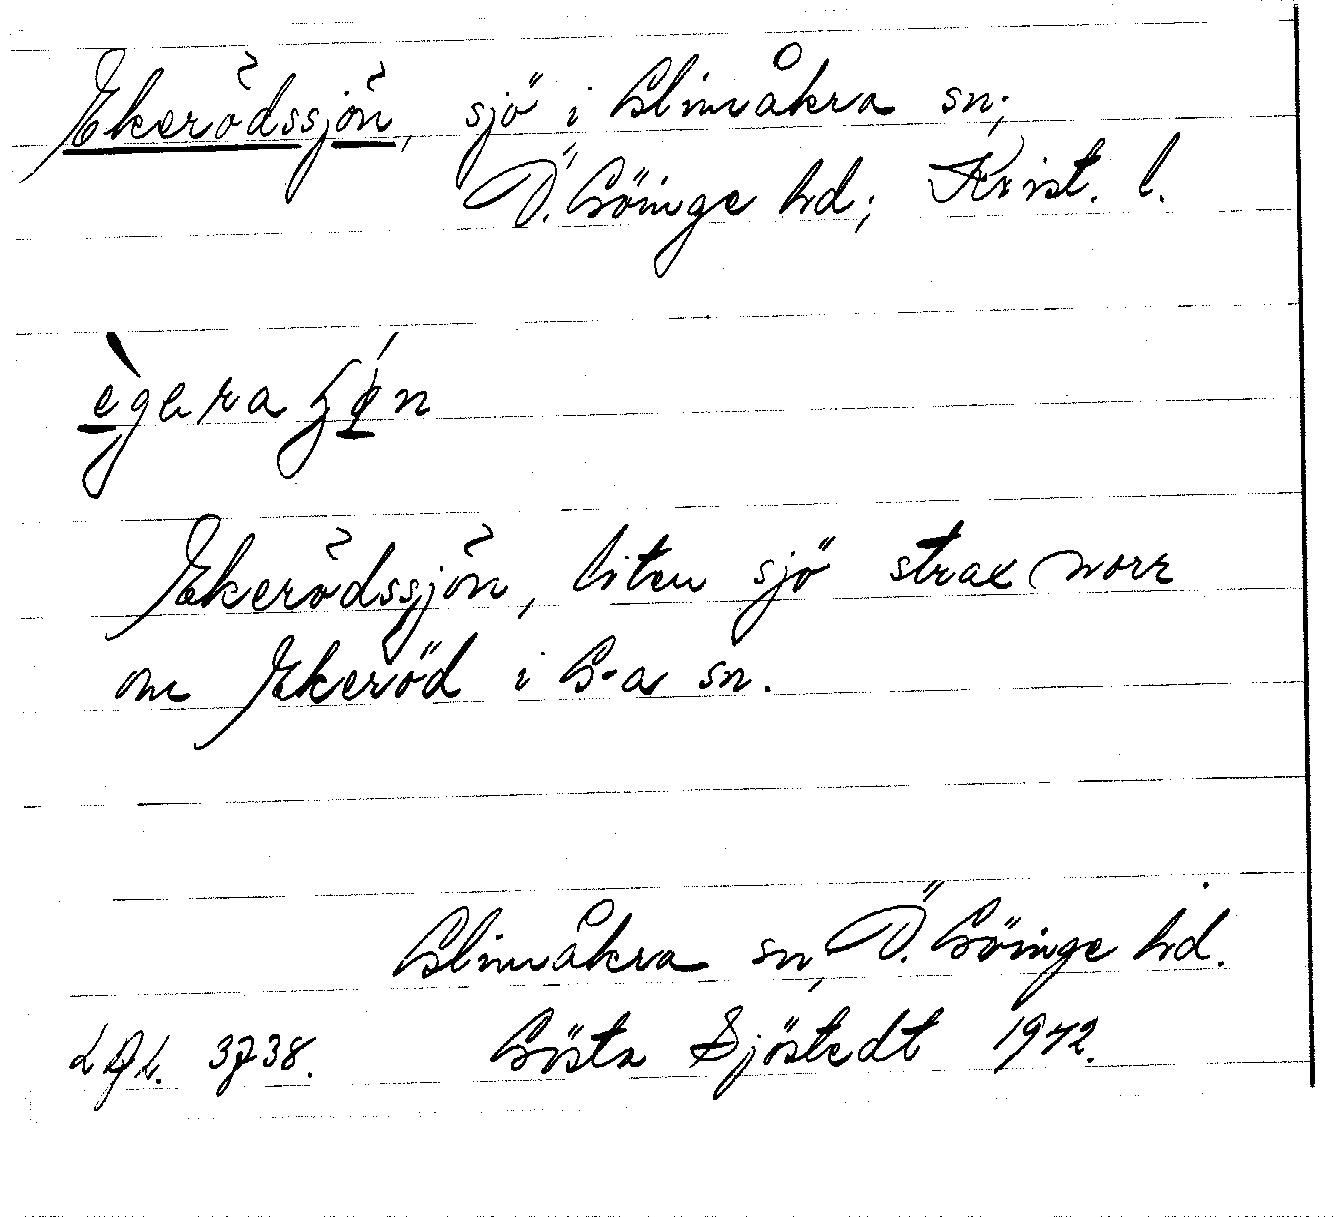 Ekerödssjön, sjö i Glimåkra sn;
Ö. Göinge hd; Krist. l.
Ekerödssjön, liten sjö strax norr
om Ekeröd i G-a sn.
Glimåkra sn, Ö. Göinge hd.
Gösta Sjöstedt 1942.